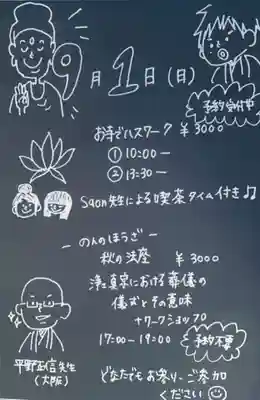 9月1日(日)
予約受付中
お寺ごハスワーク ¥3000
① 10:00-
② 13:30-
Saon先生による喫茶タイム付き♫
-のんのほうざ-
秋の法座 ¥3000
浄土真宗における葬儀の
儀式とその意味
+ワークショップ
17:00-19:00
予約不要
平野正信先生
(大阪)
どなたでもお参り、ご参加
ください